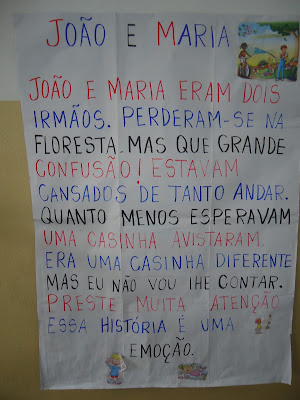 JOÃO E MARIA
JOÃO E MARIA ERAM DOIS
IRMÃOS. PERDERAM-SE NA
FLORESTA. MAS QUE GRANDE
CONFUSÃO! ESTAVAM
CANSADOS DE TANTO ANDAR.
QUANTO MENOS ESPERAVAM
UMA CASINHA AVISTARAM.
ERA UMA CASINHA DIFERENTE
MAS EU NÃO VOU LHE CONTAR.
PRESTE MUITA ATENÇÃO
ESSA HISTÓRIA É UMA
EMOÇÃO.